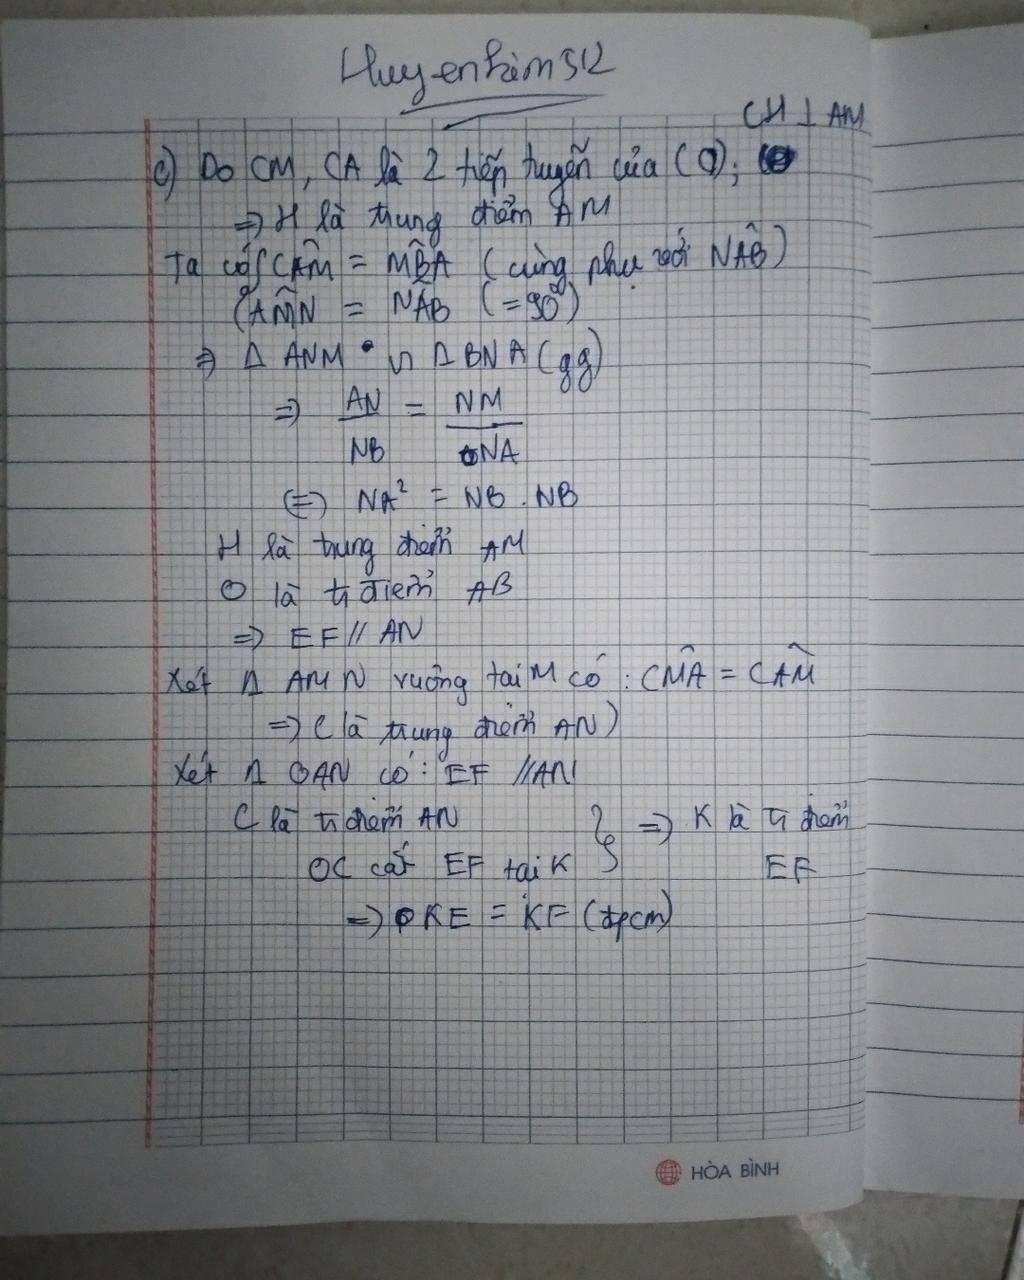 Huyenhàm512
CH ⊥ AM
c) Do CM, CA là 2 tiếp tuyến của (O);
=> H là trung điểm AM
Ta có { CÂM = MB̂A (cùng phụ với NÂB)
AM̂N = NÂB (=90°)
=> Δ ANM ∽ Δ BNA (gg)
=> AN/NB = NM/NA
(=) NA² = NB . NB
H là trung điểm AM
O là tr điểm AB
=> EF // AN
Xét Δ AMN vuông tại M có : CM̂A = CÂM
=> C là trung điểm AN)
Xét Δ OAN có : EF // AN
C là tr điểm AN } => K là tr điểm
OC cắt EF tại K EF
=> KE = KF (đpcm)
HÒA BÌNH